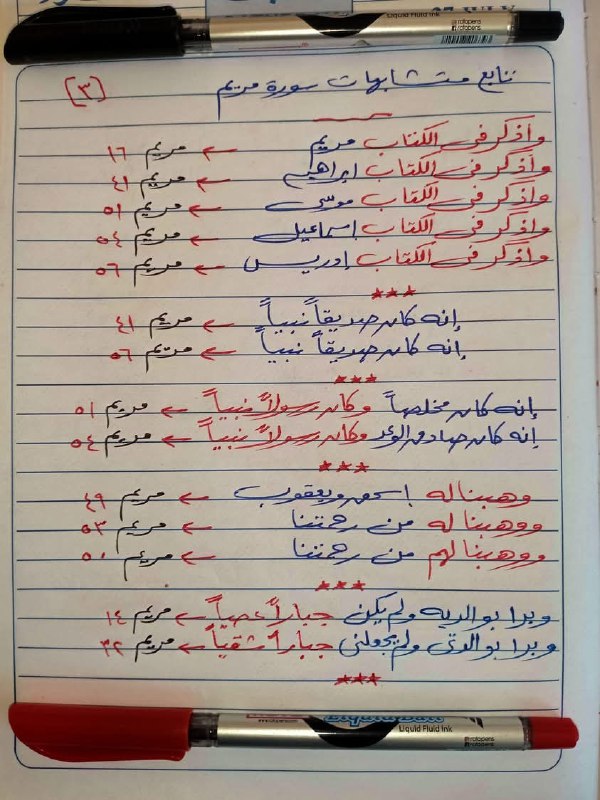 Liquid Fluid Ink
rotapens
rotapens
تابع متشابهات سورة مريم (٣)
واذكر فى الكتاب مريم ← مريم ١٦
واذكر فى الكتاب ابراهيم ← مريم ٤١
واذكر فى الكتاب موسى ← مريم ٥١
واذكر فى الكتاب إسماعيل ← مريم ٥٤
واذكر فى الكتاب إدريس ← مريم ٥٦
***
إنه كان صديقاً نبياً ← مريم ٤١
إنه كان صديقاً نبياً ← مريم ٥٦
***
إنه كان مخلصاً وكان رسولاً نبياً ← مريم ٥١
إنه كان صادق الوعد وكان رسولاً نبياً ← مريم ٥٤
***
وهبنا له إسحق ويعقوب ← مريم ٤٩
ووهبنا له من رحمتنا ← مريم ٥٣
ووهبنا لهم من رحمتنا ← مريم ٥٠
***
وبرا بوالديه ولم يكن جباراً عصياً ← مريم ١٤
وبرا بوالدتى ولم يجعلنى جباراً شقياً ← مريم ٣٢
***
Liquid Fluid Ink
rotapens
rotapens